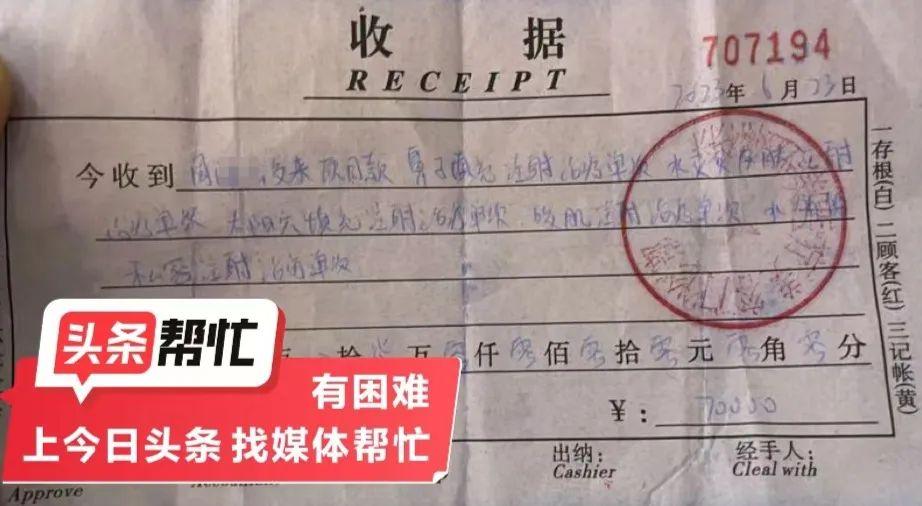 收 据
707194
RECEIPT
2023年6月23日
今收到 周 交来项目款 鼻子填充注射治疗单次 水 注射
治疗单次 太阳穴填充注射治疗单次 咬肌注射治疗单次 水
私密注射治疗单次
拾 柒 万 零 仟 零 佰 零 拾 零 元 零 角 零 分
¥: 70000
出纳: 经手人:
Cashier Cleal with
Approve
一存根(白) 二顾客(红) 三记帐(黄)
头条帮忙
有困难
上今日头条 找媒体帮忙